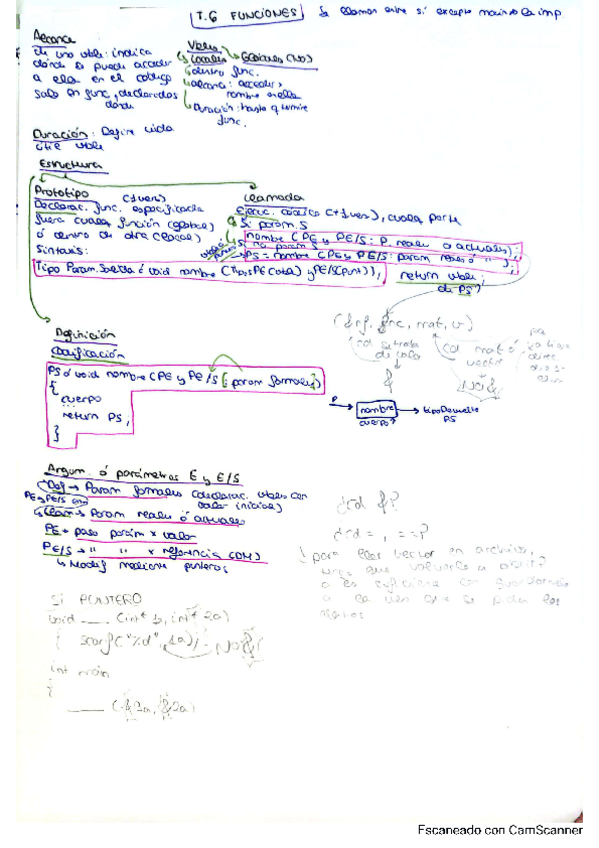 T.6 FUNCIONES Se llaman entre sí excepto main
Alcance
de una vble: indica
dónde se puede acceder
a ella en el código
solo en func, declarados
dónde
Vbles
Locales Globales (NO)
dentro func.
alcance: acceder x
nombre
Duración: hasta q termine
func.
Duración: Define vida
útil vble
Estructura
Prototipo (1 vez)
Declarac. func. especificada
fuera cualq función (global)
ó dentro de otra (local)
Sintaxis:
Tipo Param. Salida ó void nombre (tipo PE y PE/S);
Llamada
Ejecuc. código (+1 vez), cualq parte
Si param. S
nombre (PE y PE/S: P. reales o actuales);
Si no param
PS = nombre (PE y PE/S: param reales ó " );
return vble
de PS
Definición
Codificación
PS ó void nombre (PE y PE/S: param formales)
{
cuerpo
return PS;
}
mat, v)
cd mat ó
vector
&
NO &
P → nombre → tipo Devuelto
cuerpo PS
Argum. ó parámetros E y E/S
Def → Param formales (declarac. vbles con
valor inicial)
PE y PE/S
Llam → Param reales ó actuales
PE → paso parám x valor
PE/S → " " x referencia
↳ Modif mediante punteros
¿cd &?
¿cd =, ==?
¿para leer vector en archivo,
tienes que volverlo a abrir?
o es suficiente con
SI PUNTERO
void ___ (int* 1, int* 2a)
{ scanf("%d", 1a); NO &!
int main
{
___ (&1a, &2a)
Escaneado con CamScanner